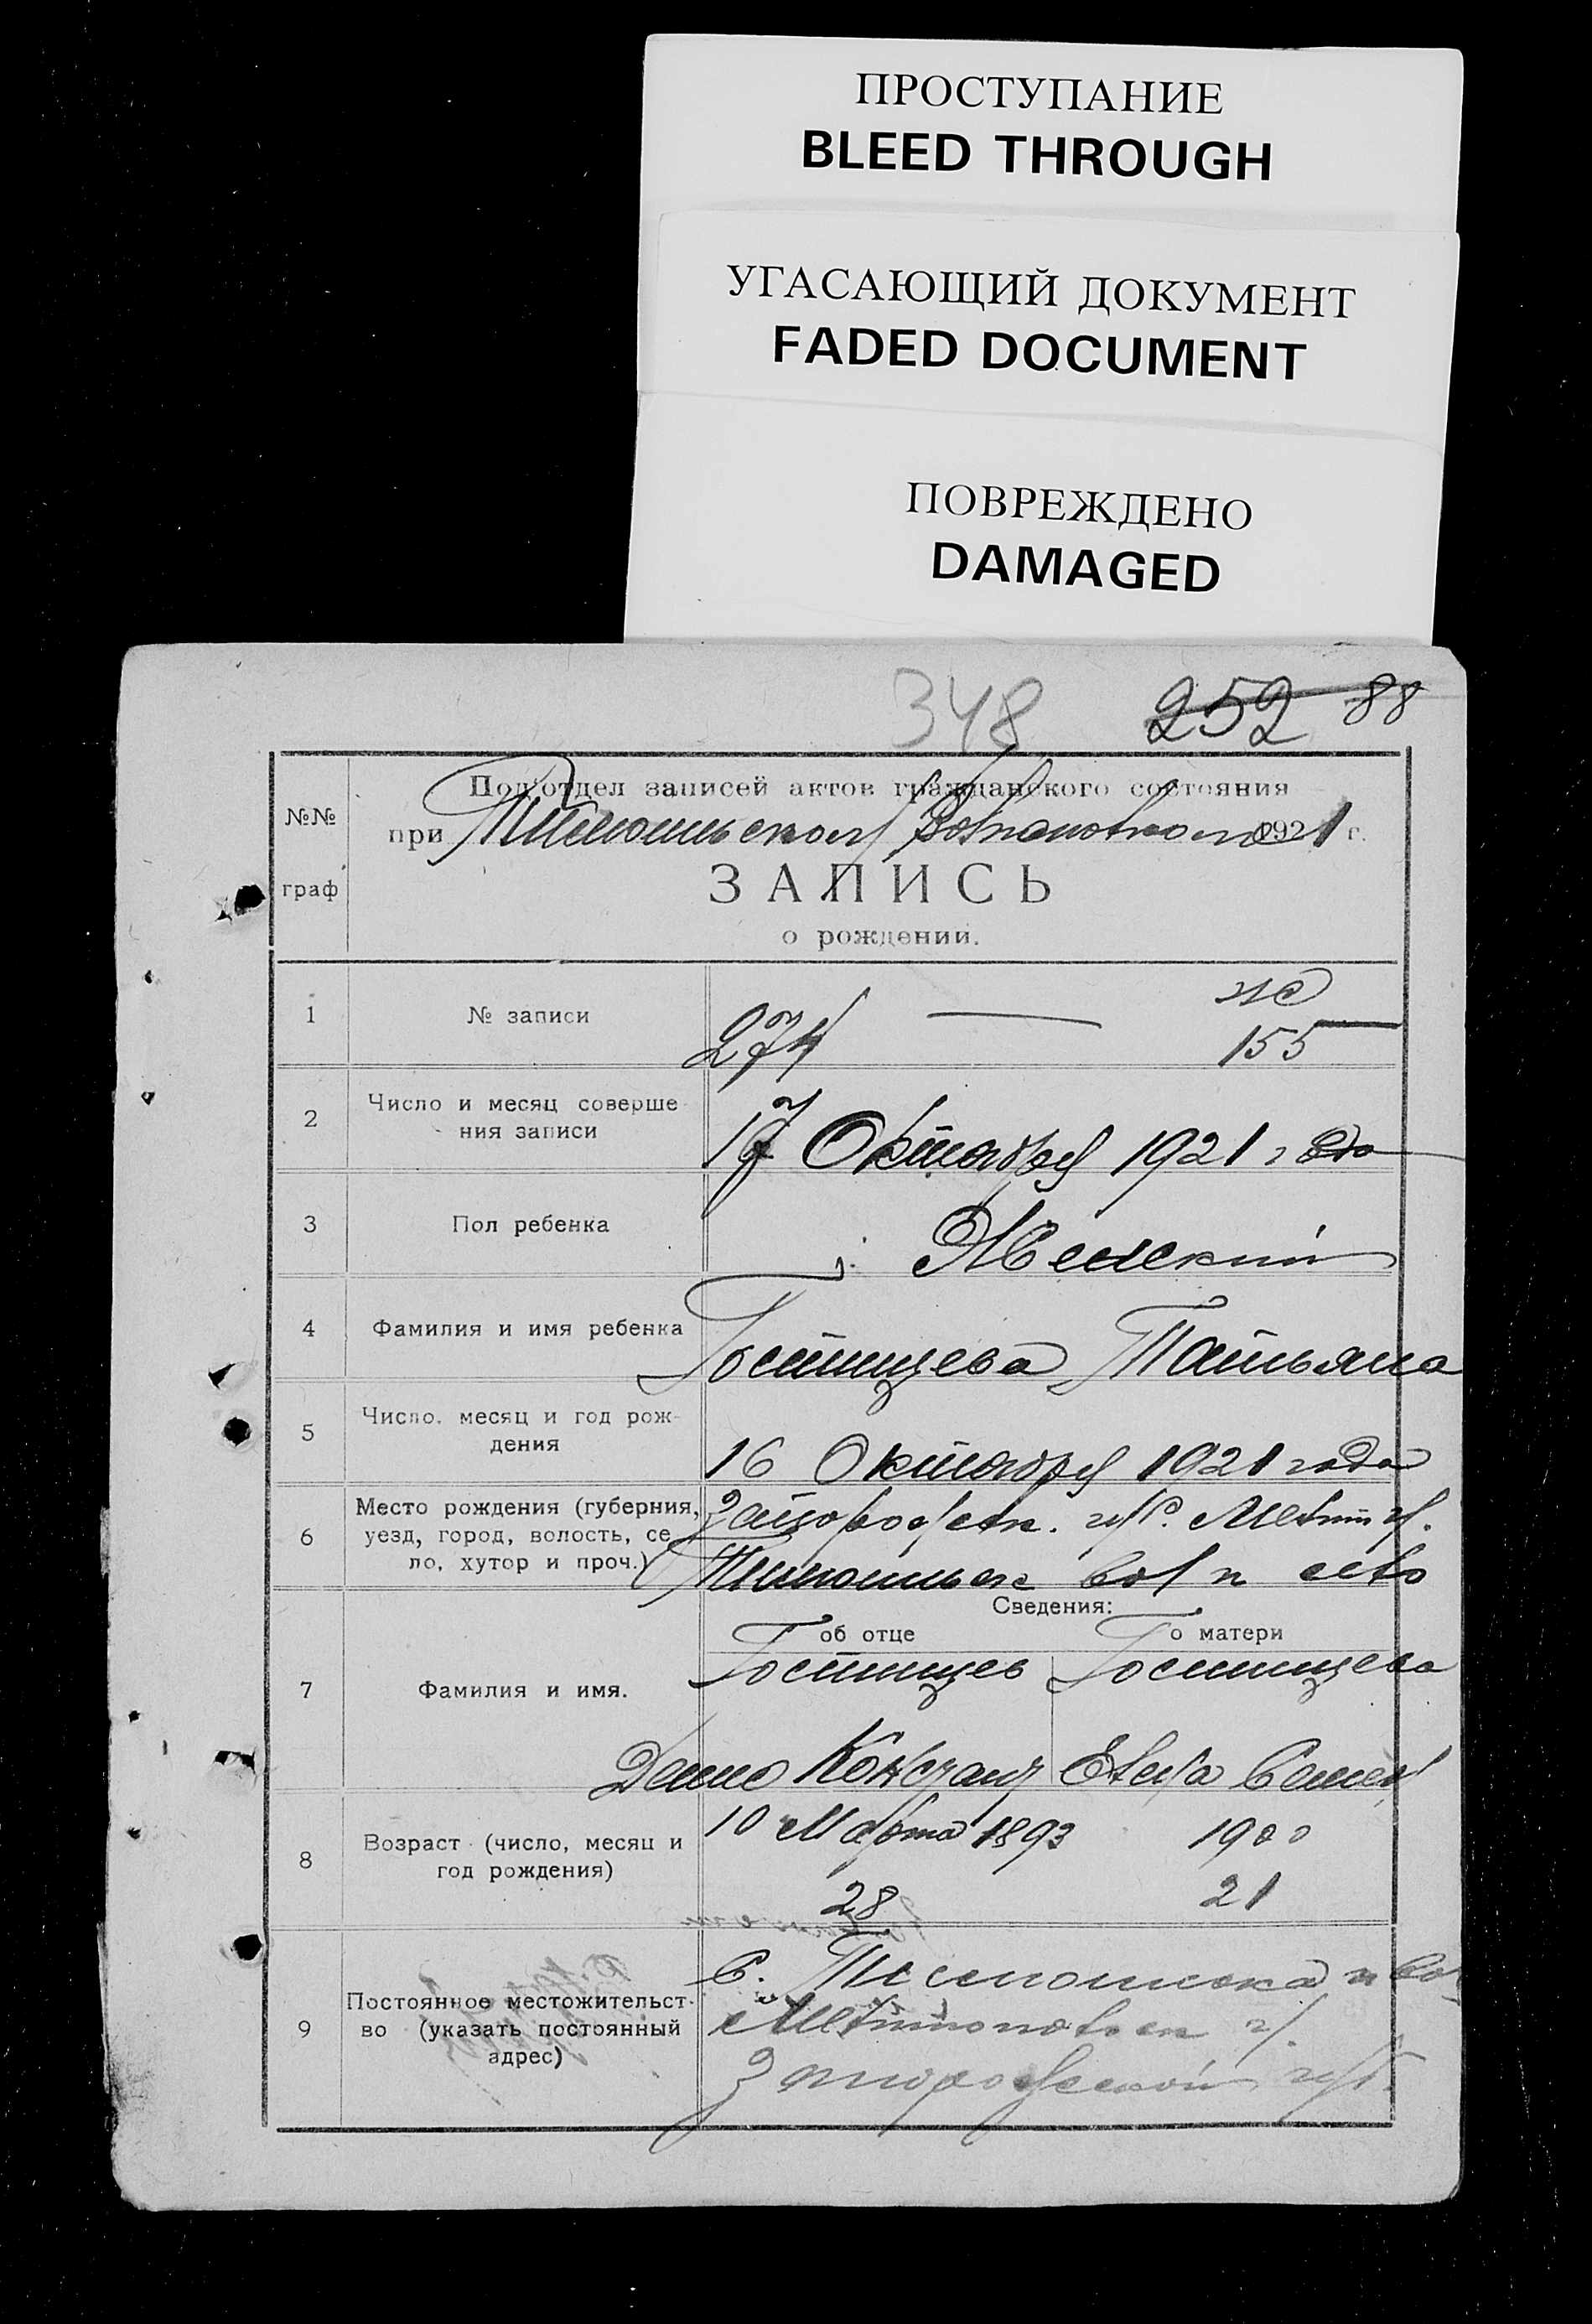 ПРОСТУПАНИЕ
BLEED THROUGH
УГАСАЮЩИЙ ДОКУМЕНТ
FADED DOCUMENT
ПОВРЕЖДЕНО
DAMAGED
348 252 88
Подотдел записей актов гражданского состояния
№№ при 1921 г.
граф ЗАПИСЬ
о рождении.
1 № записи 274 — жс 155
2 Число и месяц соверше-
ния записи 17 Октября 1921 года
3 Пол ребенка Женский
4 Фамилия и имя ребенка Гостищева Татьяна
5 Число, месяц и год рож-
дения 16 Октября 1921 года
Место рождения (губерния,
6 уезд, город, волость, се-
ло, хутор и проч.)
Сведения:
об отце о матери
Гостищев Гостищева
7 Фамилия и имя.
8 Возраст (число, месяц и 10 Марта 1893 1900
год рождения)
28 21
9 Постоянное местожительст-
во (указать постоянный
адрес)